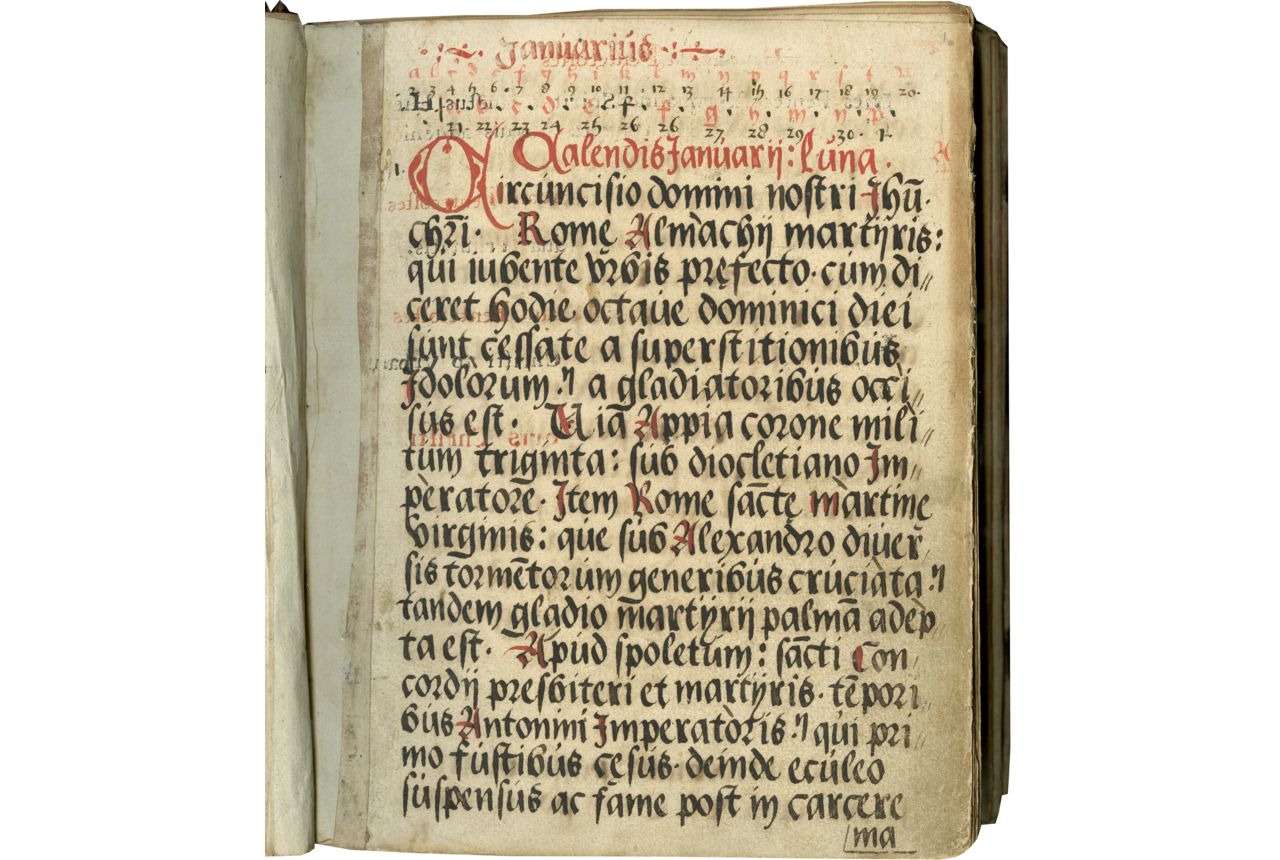 Januarius
a b c d e f g h i k l m n p q r s t
2 3 4 5 6 7 8 9 10 11 12 13 14 15 16 17 18 19 20
21 22 23 24 25 26 26 27 28 29 30 1
Calendis Januarij: luna.
1. Circuncisio domini nostri Jhū.
chrī. Romę Almachij martyris:
qui iubente vrbis pręfecto. cum di//
ceret hodie octaue dominici diei
sunt cessate a superstitionibus
Idolorum: a gladiatoribus occi//
sus est. Uia Appia corone mili//
tum triginta: sub diocletiano Im//
peratore. Item Rome sanctę martine
virginis: que sub Alexandro diuer//
sis tormentorum generibus cruciata:
tandem gladio martyrij palmā adep//
ta est. Apud spoletum: sancti Con//
cordij presbiteri et martyris. tēpori//
bus Antonini Imperatoris: qui pri//
mo fustibus cęsus. deinde eculeo
suspensus ac fame post in carcere
ma